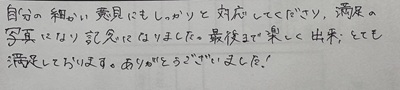 自分の細かい意見にもしっかりと対応してくださり、満足の
写真になり記念になりました。最後まで楽しく出来、とても
満足しております。ありがとうございました!